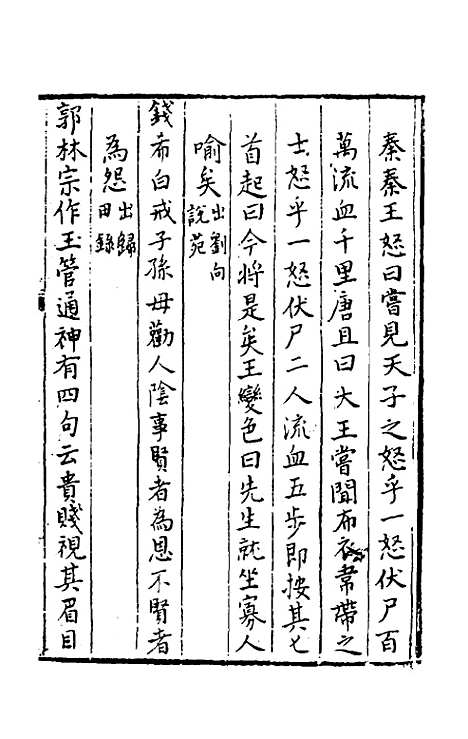 秦秦王怒曰嘗見天子之怒乎一怒伏尸百
萬流血千里唐且曰大王嘗聞布衣韋帶之
士怒乎一怒伏尸二人流血五步即按其匕
首起曰今將是矣王變色曰先生就坐寡人
喻矣出劉向說苑
錢希白戒子孫毋勸人陰事賢者為恩不賢者
為怨出歸田錄
郭林宗作玉管通神有四句云貴賤視其眉目